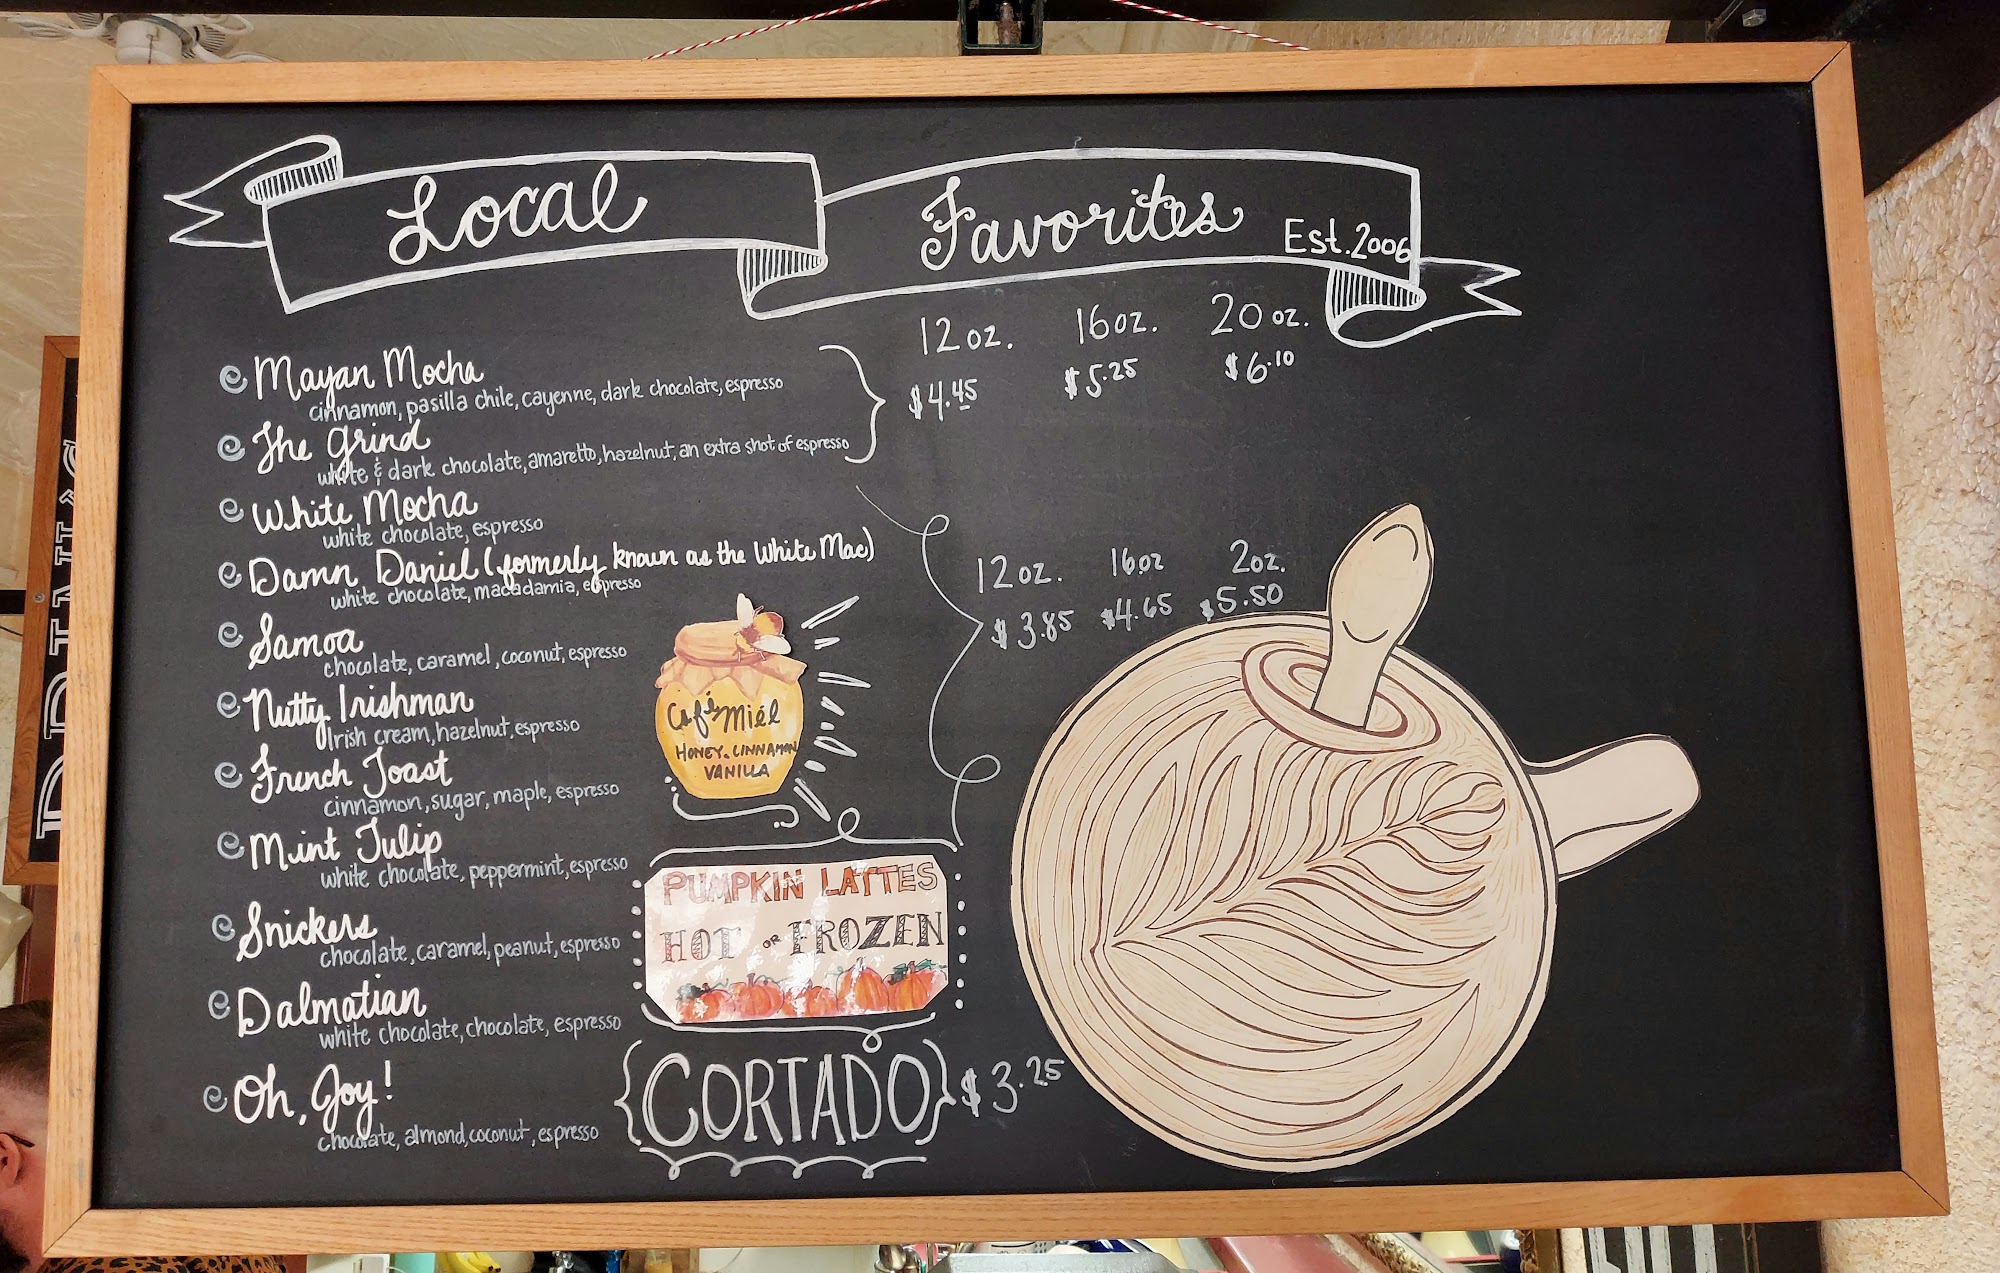 Local Favorites Est. 2006
12 oz. 16 oz. 20 oz.
$4.45 $5.25 $6.10
Mayan Mocha
cinnamon, pasilla chile, cayenne, dark chocolate, espresso
The Grind
white & dark chocolate, amaretto, hazelnut, an extra shot of espresso
White Mocha
white chocolate, espresso
Damn, Daniel (formerly known as the White Mac)
white chocolate, macadamia, espresso
12 oz. 16 oz 2oz.
$3.85 $4.65 $5.50
Samoa
chocolate, caramel, coconut, espresso
Nutty Irishman
Irish cream, hazelnut, espresso
French Toast
cinnamon, sugar, maple, espresso
Mint Julip
white chocolate, peppermint, espresso
Snickers
chocolate, caramel, peanut, espresso
Dalmatian
white chocolate, chocolate, espresso
Oh, Joy!
chocolate, almond, coconut, espresso
Café Miél
HONEY. CINNAMON
VANILLA
PUMPKIN LATTES
HOT OR FROZEN
{CORTADO} $3.25